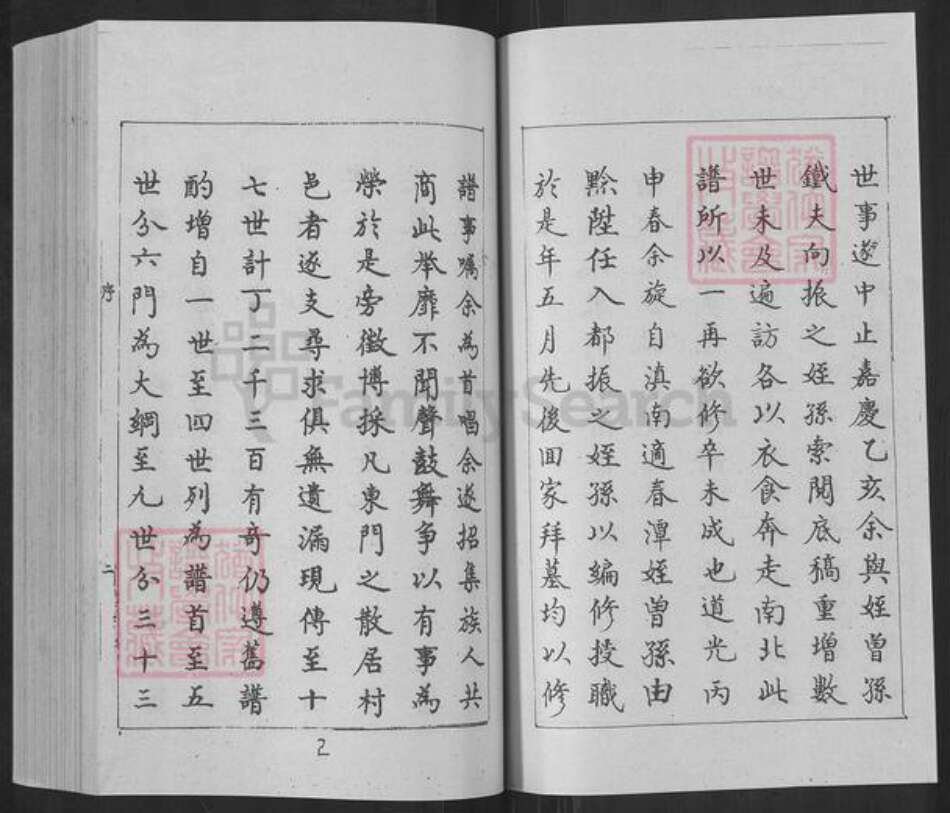 世事遂中止嘉慶乙亥余與姪曾孫
鐵夫向振之姪孫索閱底稿重增數
世未及遍訪各以衣食奔走南北此
譜所以一再欲修卒未成也道光丙
申春余旋自滇南適春潭姪曾孫由
黔陞任入都振之姪孫以編修授職
於是年五月先後回家拜墓均以修
譜事囑余為首唱余遂招集族人共
商此舉靡不聞聲鼓舞争以有事為
榮於是旁徵博採凡東門之散居村
邑者逐支尋求俱無遺漏現傳至十
七世計丁二千三百有奇仍遵舊譜
酌增自一世至四世列為譜首至五
世分六門為大綱至九世分三十三
序
二
2
FamilySearch